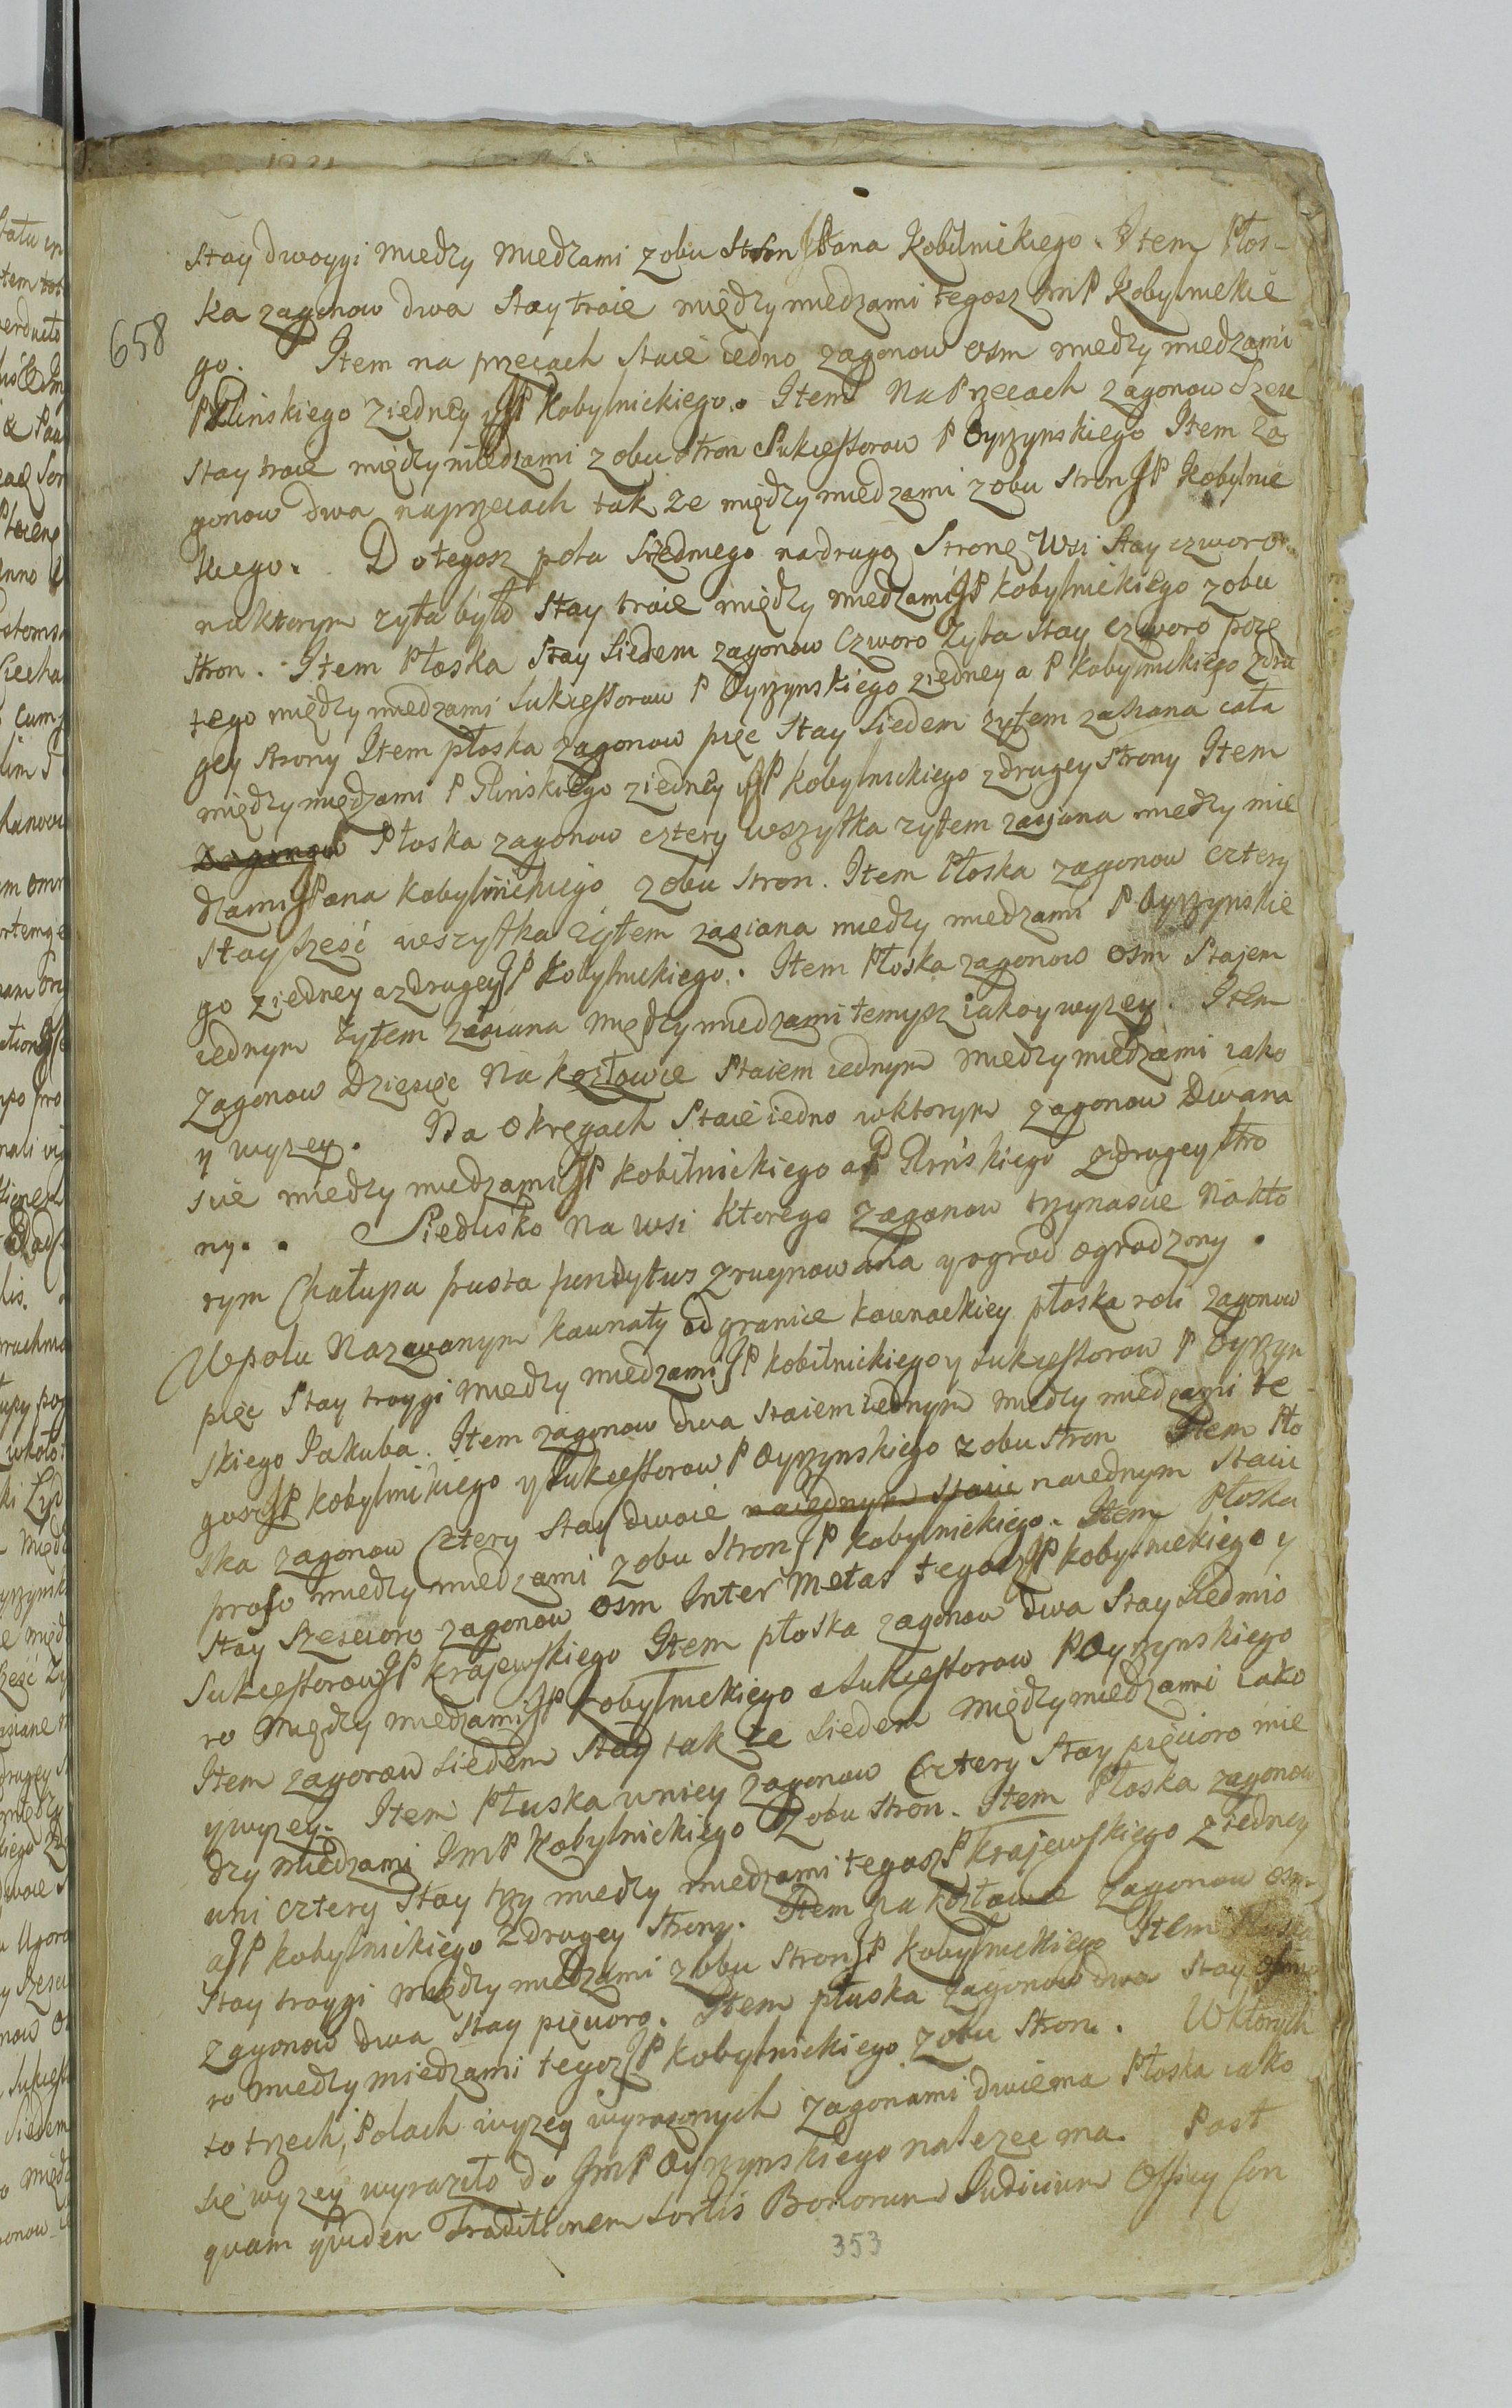 Stay dwoygi miedzy miedzami zobu Stron JPana Kobilnickiego. Item Płos-
ka zagonow dwa Stay troie między miedzami tegosz ImP Kobylnickie
658
go. Item na przecach staie iedno zagonow osm miedzy miedzami
P Glinskiego ziedney y JP Kobylnickiego. Item Na Przecach zagonow Szesc
Stay troie między miedzami zobu stron Sukcessorow P Oyrzynskiego Item za
gonow dwa naprzecach tak ze między miedzami zobu stron JP Kobylnic
kiego. Dotegosz pola Srzedniego nadrugą Stronę Wsi Stay czworo
naktorym zyta było Stay troie między miedzami JP Kobylnickiego zobu
stron. Item Płoska Stay Siedem zagonow czworo Zyta Stay czworo
tego między miedzami Sukcessorow P Oyrzynskiego ziedney a P Kobylnickiego zdru
gey strony Item płoska zagonow pięc Stay Siedem zytem zasiana cała
między miedzami P Glinskiego ziedney y JP Kobylnickiego zdrugey Strony Item
Zagonow Płoska zagonow cztery wszytka zytem zasiana miedzy mie
dzami JPana Kobylinickiego zobu stron. Item Płoska zagonow cztery
Stay szesć wszytka Zytem zasiana miedzy miedzami P Oyrzynskie
go ziedney a zdrugey JP Kobylnickiego. Item Płoska zagonow osm Stajem
iednym Zytem zasiana między miedzami temysz iako y wyzey. Item
Zagonow Dziesięc Na Kozłowie Staiem iednym miedzy miedzami iako
y wyzey. Na Okręgach Staie iedno wktorym zagonow Dwana
scie miedzy miedzami JP Kobilnickiego a P Glinskiego zdrugey stro
ny. Siedlisko na wsi ktorego zagonow trzynascie Nakto
rym Chałupa pusta funditus zruynowana y ogrod ogrodzony.
Wpolu Nazwanym Kownaty od granice Kownackiey płoska roli zagonow
pięc Stay troygi miedzy miedzami JP Kobilnickiego y Sukcessorow P Oyrzyn
skiego Jakuba. Item zagonow dwa staiem iednym miedzy miedzami te
gosz JP Kobylinickiego y Sukcessorow P Oyrzynskiego zobu stron Item Pło
ska zagonow Cztery Stay dwoie naiednym staiu naiednym staiu
proso miedzy miedzami zobu Stron JP Kobylnickiego. Item Płoska
Stay Szescioro zagonow osm Inter Metas tegosz JP Kobylnickiego y
Sukcessorow JP Krajewskiego Item płoska zagonow dwa Stay Siedmio
ro między miedzami JP Kobylnickiego a Sukcessorow P Oyrzynskiego
Item zagonow siedem Stay tak ze siedem między miedzami iako
y wyzey. Item Płuska wniey Zagonow Cztery Stay pięcioro mie
dzy miedzami ImP Kobylnickiego zobu stron. Item Płoska zagonow
wni cztery Stay trzy miedzy miedzami tegosz P Krajewskiego ziedney
a JP Kobylnickiego Zdrugey Strony. Item na Kozłowie zagonow osm
Stay troygi między miedzami zobu stron JP Kobylnickiego Item Płoska
Zagonow dwa Stay pięcioro. Item płuska zagonow dwa Stay
ro miedzy miedzami tegosz JP Kobylnickiego zobu stron. Wktorych
to trzech Polach wyzey wyrazonych zagonami dwiema Płoska iako
się wyzey wyraziło do ImP Oyrzynskiego nalezec ma. Post
quam quidem Traditionem Sortis Bonorum Iudicium Officy Con
353